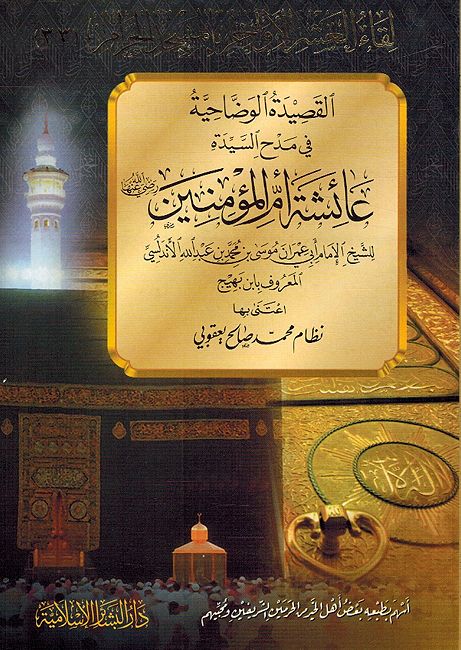 لقاء العشر الأواخر بالمسجد الحرام (٣٣)
القصيدة الوضاحية
في مدح السيدة
عائشة أم المؤمنين رضي الله عنها
للشيخ الإمام أبي عمران موسى بن محمد بن عبد الله الأندلسي
المعروف بابن بهيج
اعتنى بها
نظام محمد صالح يعقوبي
لا إله إلا الله
أسهم بطبعه بعض أهل الخير من الحرمين الشريفين ومحبيهم
دار البشائر الإسلامية